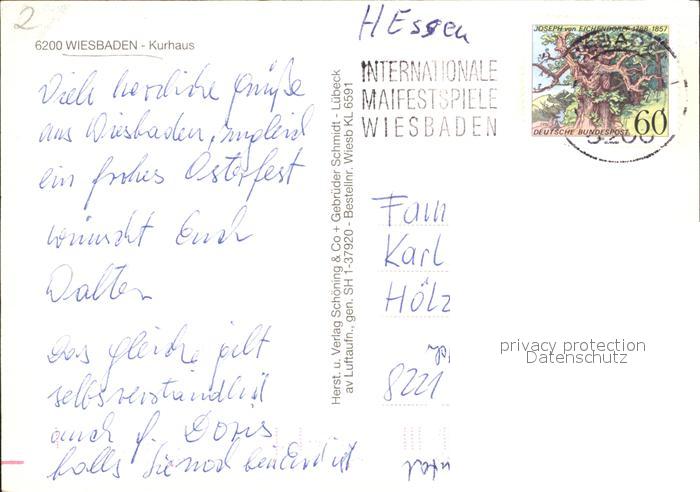 2
6200 WIESBADEN - Kurhaus
Viele herzliche Grüße
aus Wiesbaden, zugleich
ein frohes Osterfest
wünscht Euch
Walter
Das gleiche gilt
selbstverständlich
auch f. Doris
falls Sie noch bei Euch ist
Herst. u. Verlag Schöning & Co + Gebrüder Schmidt - Lübeck
av Luftaufn., gen. SH 1-37920 - Bestellnr. Wiesb KL 6591
HEssen
INTERNATIONALE
MAIFESTSPIELE
WIESBADEN
JOSEPH von EICHENDORFF 1788-1857
DEUTSCHE BUNDESPOST 60
Fam
Karl
Hölz
8221
privacy protection
Datenschutz